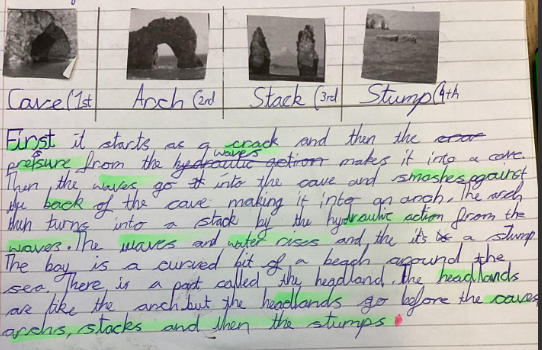 Cave (1st Arch (2nd Stack (3rd Stump (4th
First it starts as a crack and then the
pressure from the hydraulic action waves makes it into a cave.
Then the waves go into the cave and smashes against
the back of the cave making it into an arch. The arch
then turns into a stack by the hydraulic action from the
waves. The waves and water rises and the it's a stump
The bay is a curved bit of a beach around the
sea. There is a part called the headland. the headlands
are like the arch but the headlands go before the caves,
archs, stacks and then the stumps.